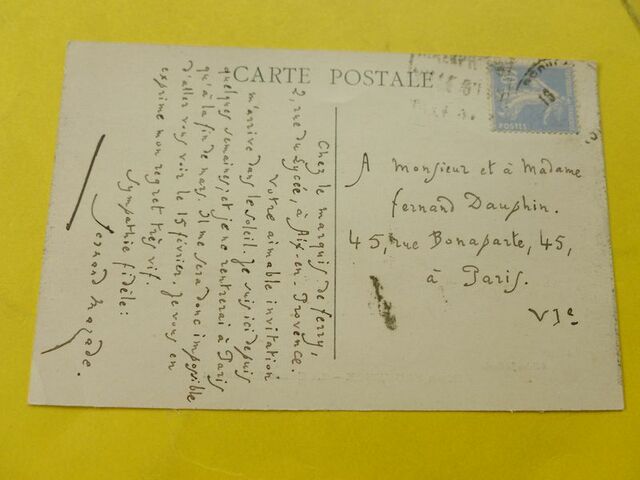 CARTE POSTALE
Chez le marquis de ferry,
2, rue du Lycée, à Aix-en-Provence.
Votre aimable invitation
m'arrive dans le soleil. Je suis ici depuis
quelques semaines, et je ne rentrerai à Paris
qu'à la fin de mars. Il me sera donc impossible
d'aller vous voir le 15 février. Je vous en
exprime mon regret très vif.
Sympathie fidèle:
fernand Mazade.
A Monsieur et à Madame
fernand Dauphin.
45, rue Bonaparte, 45,
à Paris.
VIe
POSTES